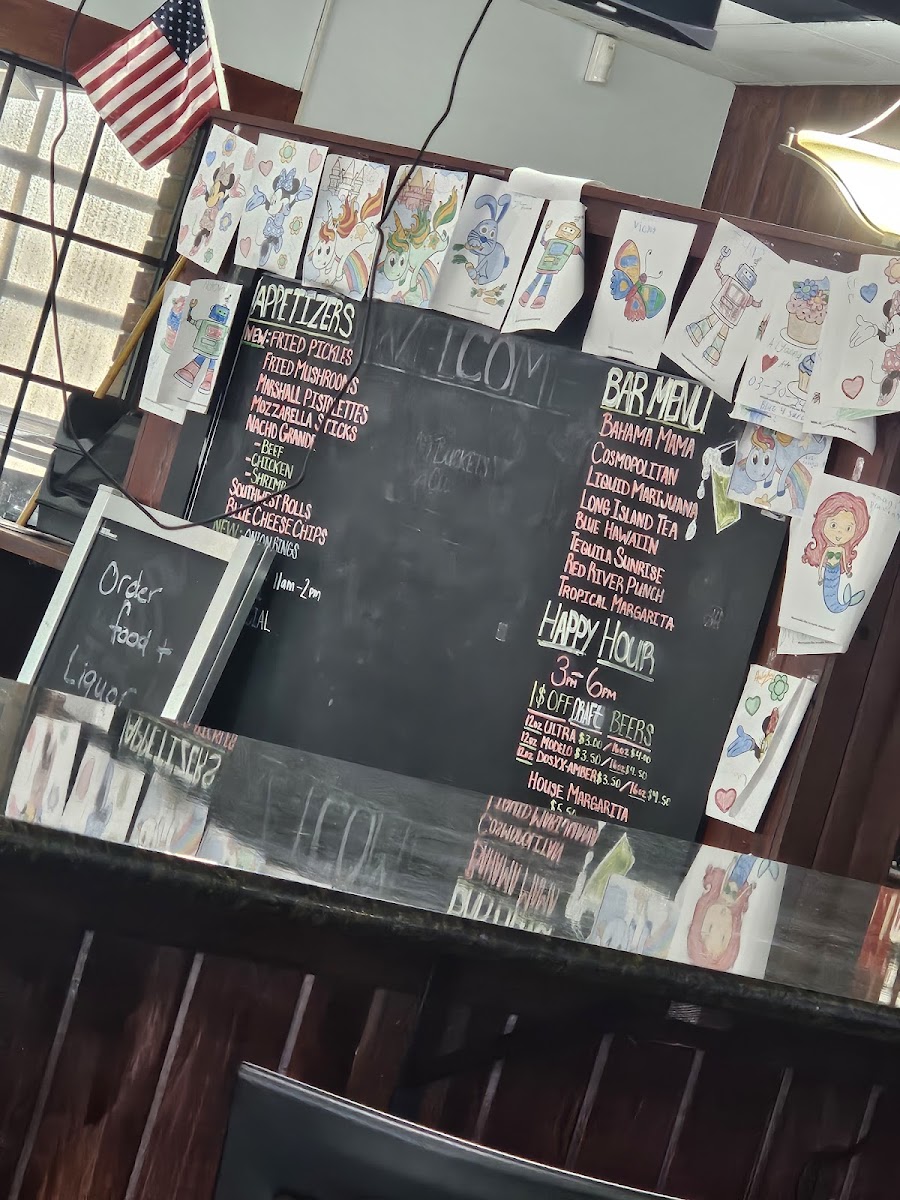 APPETIZERS
NEW: FRIED PICKLES
FRIED MUSHROOMS
MARSHALL PISTOLETTES
MOZZARELLA STICKS
NACHO GRANDE
-BEEF
-CHICKEN
-SHRIMP
SOUTHWEST ROLLS
BLUE CHEESE CHIPS
NEW: ONION RINGS
11am-2pm
WELCOM
BUCKETS
BAR MENU
BAHAMA MAMA
COSMOPOLITAN
LIQUID MARIJUANA
LONG ISLAND TEA
BLUE HAWAIIN
TEQUILA SUNRISE
RED RIVER PUNCH
TROPICAL MARGARITA
HAPPY HOUR
3PM-6PM
1$ OFF DRAFT BEERS
12oz ULTRA $3.00/16oz $4.00
12oz MODELO $3.50/16oz $4.50
12oz DOSXX-AMBER $3.50/16oz $4.50
HOUSE MARGARITA
Order
food +
Liquor